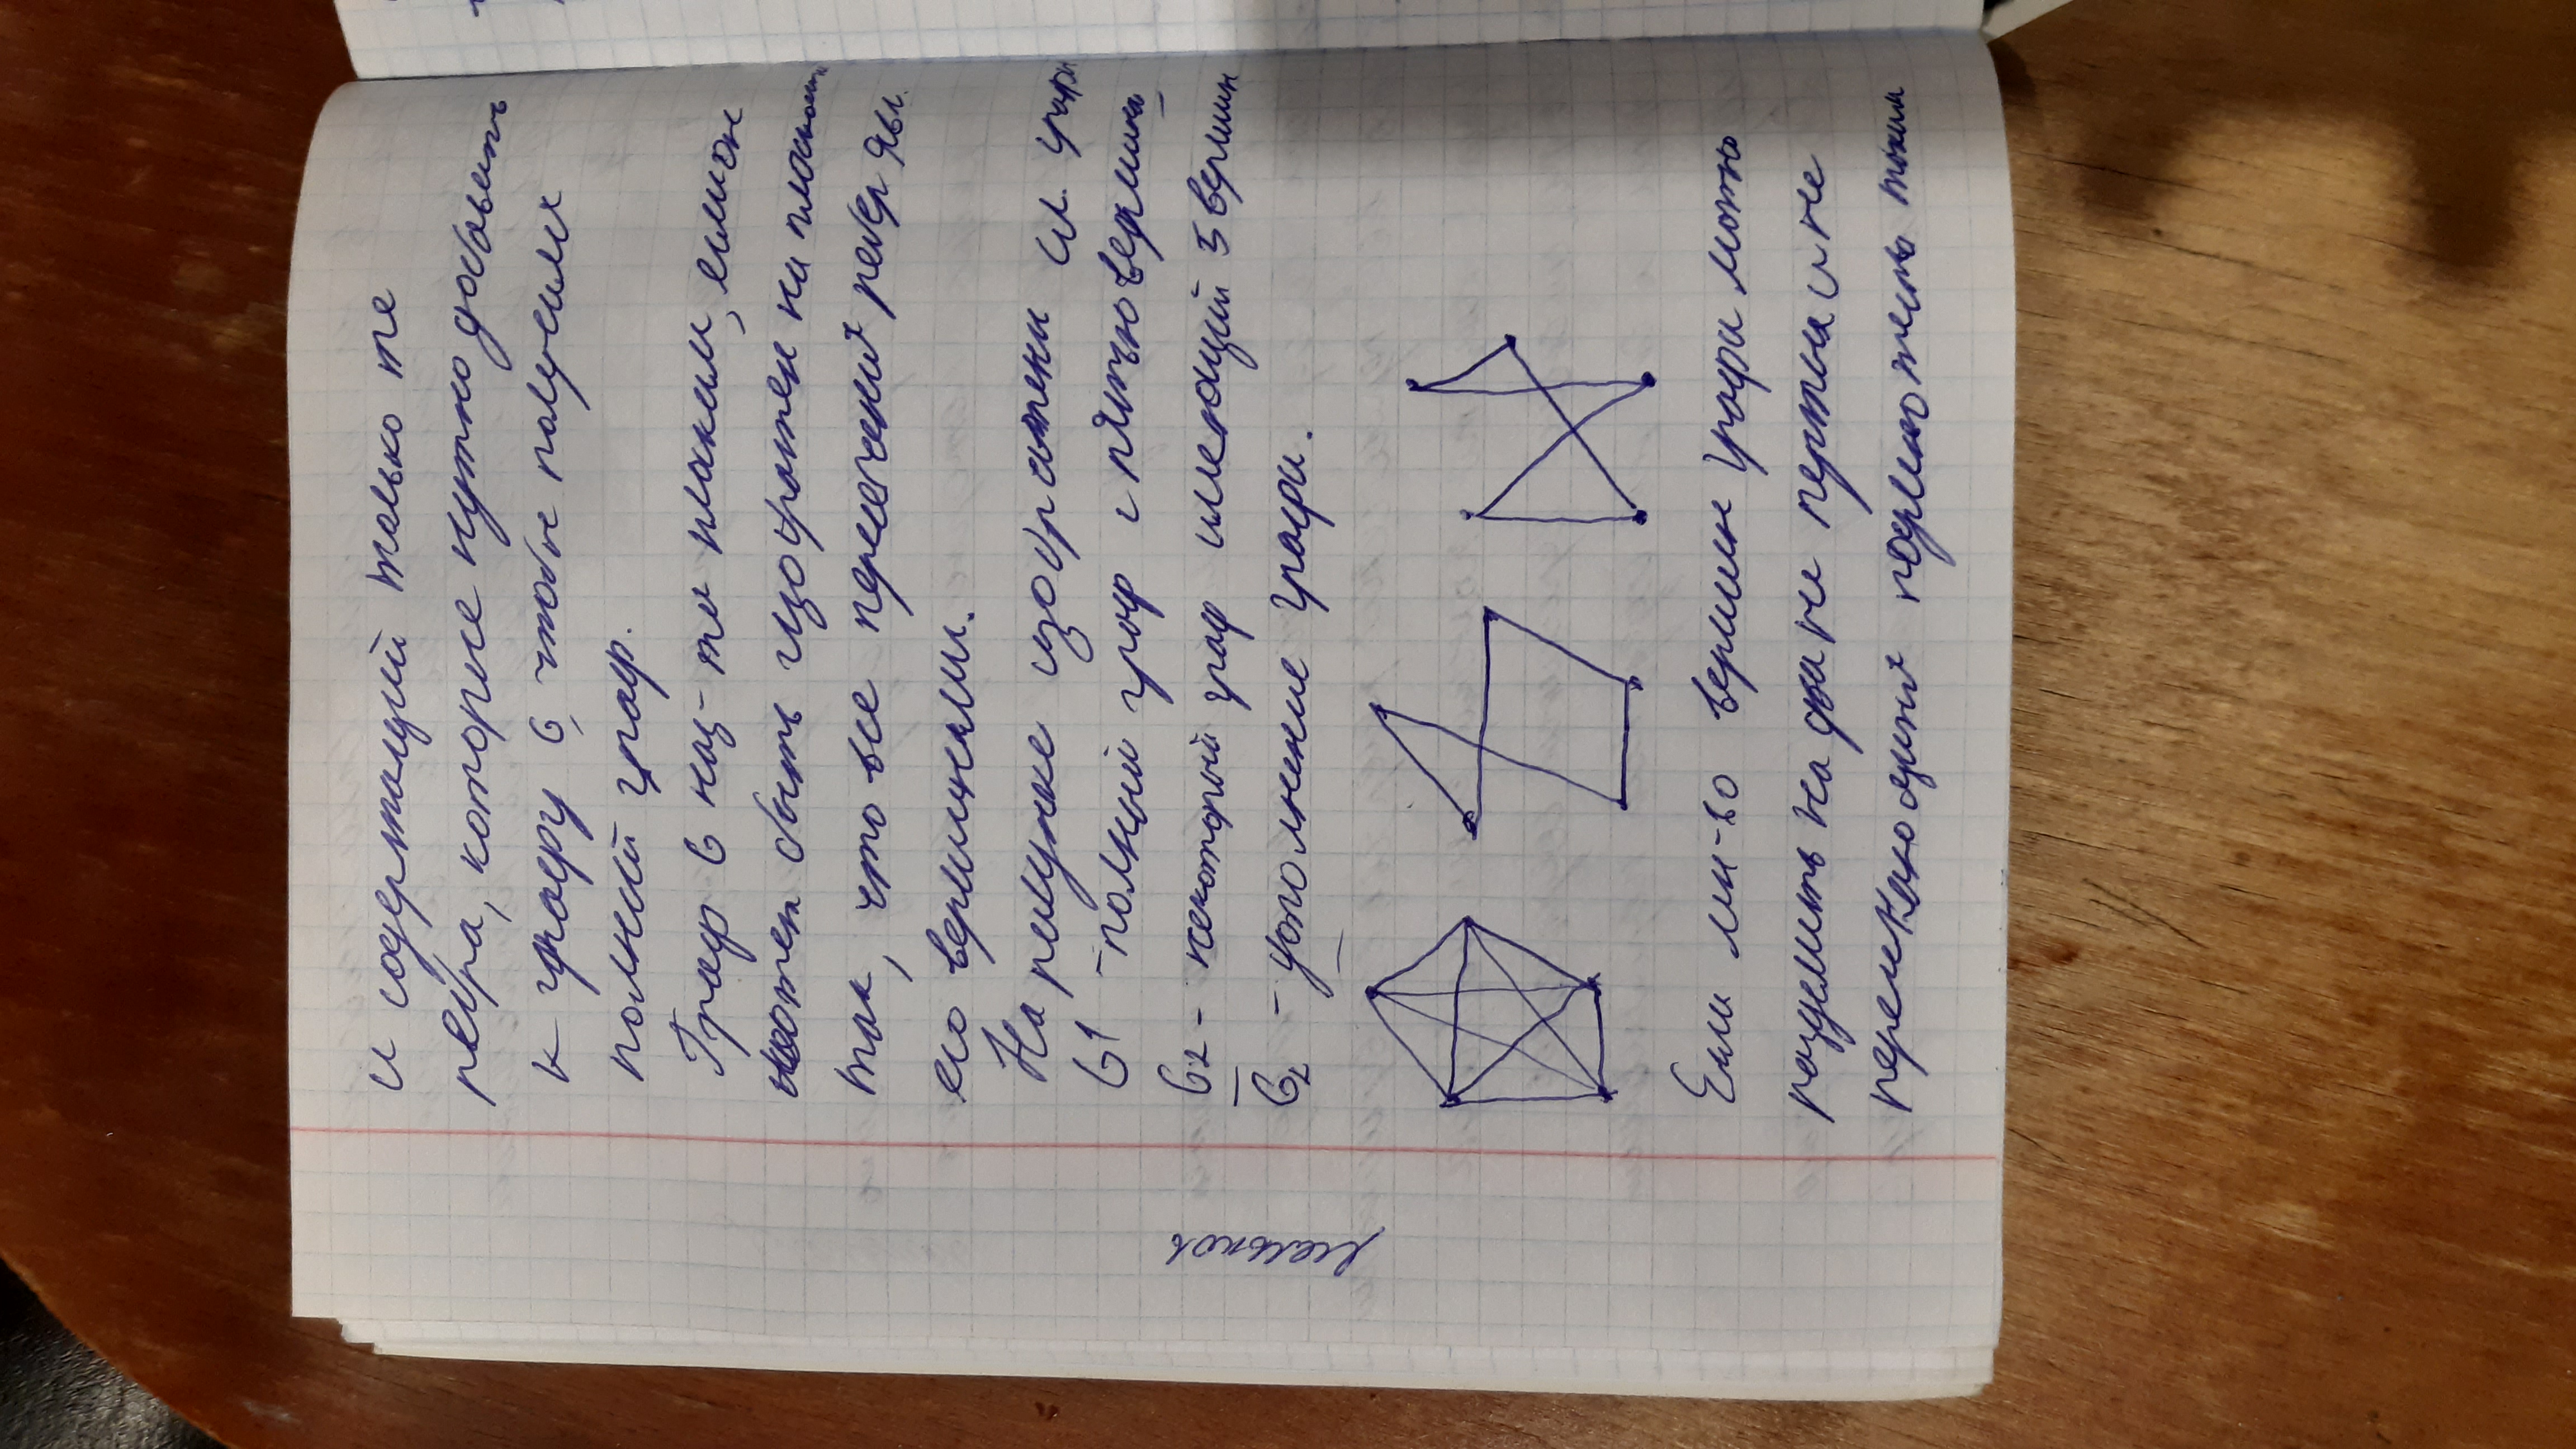 и содержащий только те
ребра, которые нужно добавить
к графу G, чтобы получить
полный граф.
Граф G наз-та плаким, если он
может быть изображен на плоскости
так, что все пересечения ребер явл.
его вершинами.
На рисунке изображены сл. графы
G1 - полный граф с пятью вершина
G2 - некоторый граф имеющий 5 вершин
G̅2 - дополнение графа.
Мельков
Если мн-во вершин графа можно
разделить на два не пустых и не
пересекающихся подмножества таким